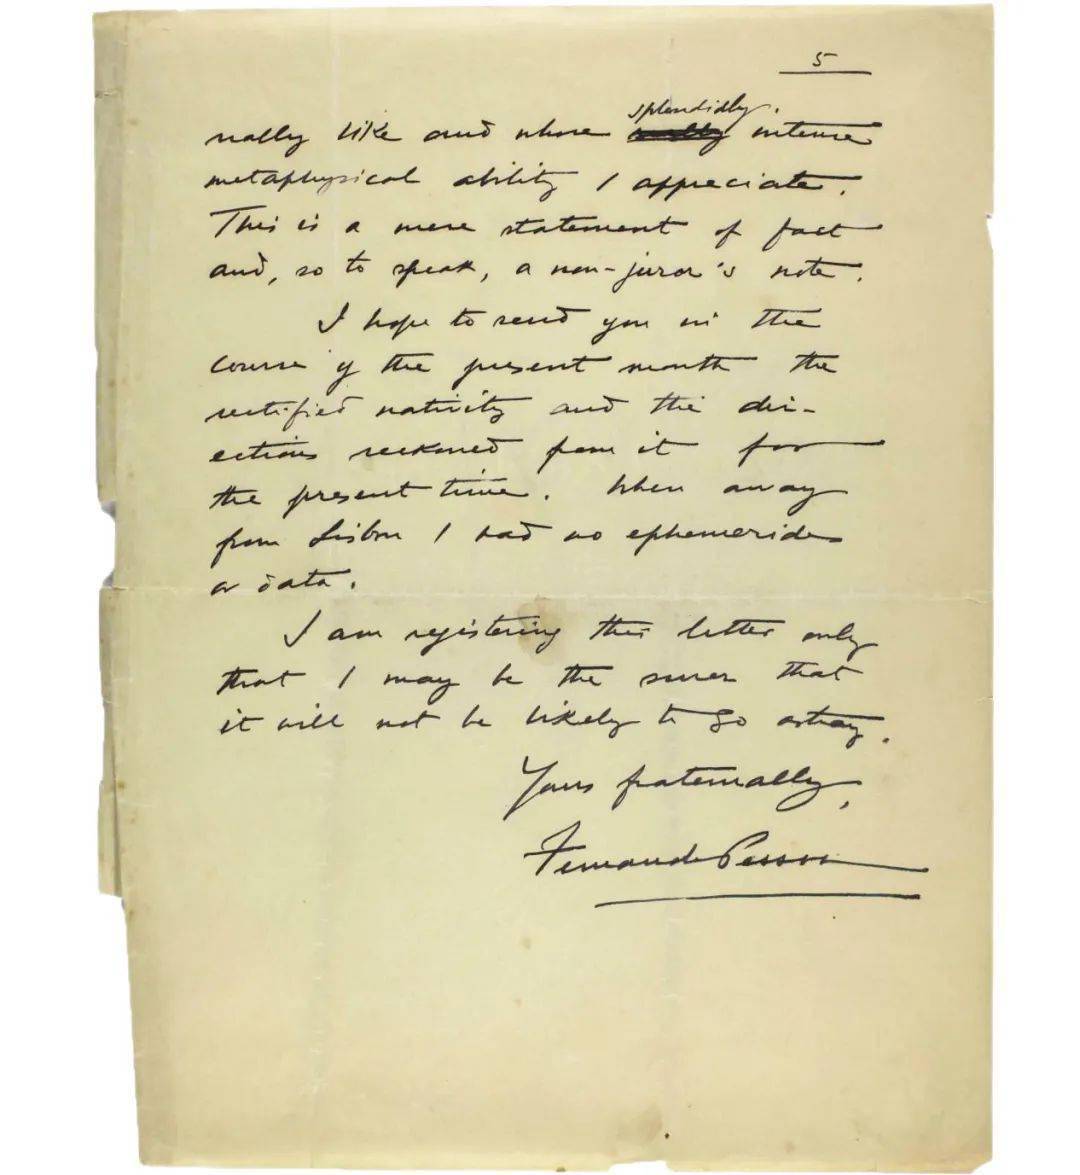 5
splendidly
nally like and whose intense
metaphysical ability I appreciate.
This is a mere statement of fact
and, so to speak, a non-juror's note.
I hope to send you in the
course of the present month the
rectified nativity and the dir-
ections reckoned from it for
the present time. When away
from Lisbon I had no ephemerides
or data.
I am registering this letter only
that I may be the surer that
it will not be likely to go astray.
Yours fraternally,
Fernando Pessoa